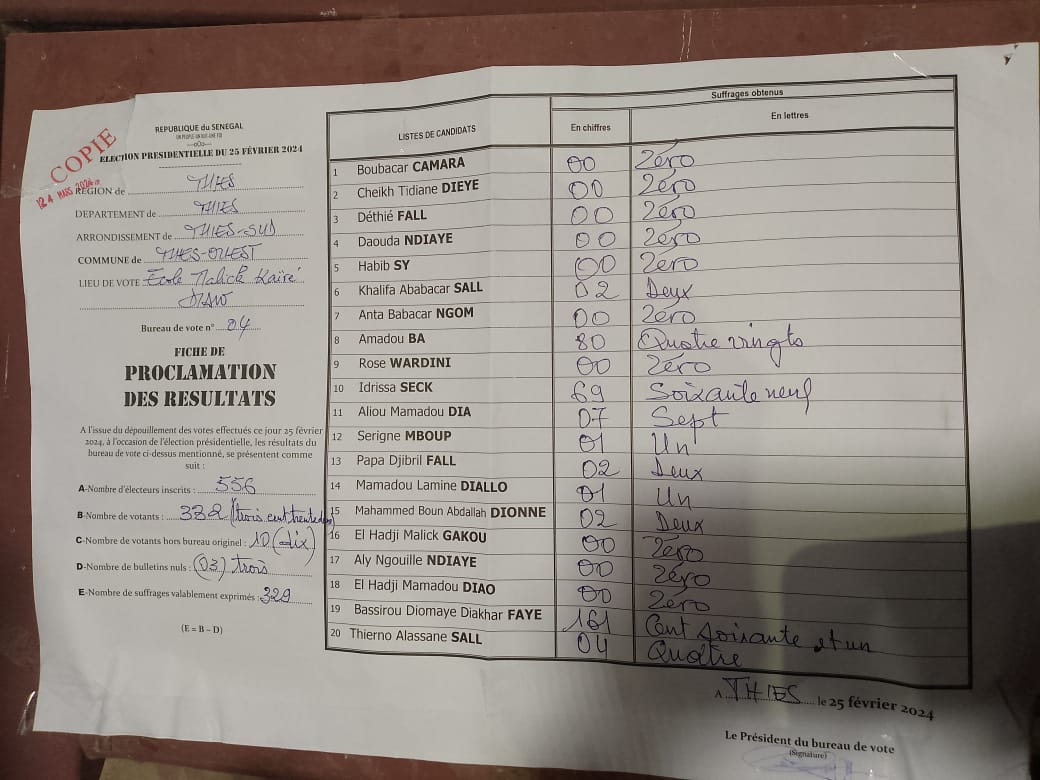 COPIE
24 MARS 2024
REPUBLIQUE du SENEGAL
UN PEUPLE-UN BUT-UNE FOI
---oOo---
ELECTION PRESIDENTIELLE DU 25 FÉVRIER 2024
REGION de THIES
DEPARTEMENT de THIES
ARRONDISSEMENT de THIES-SUD
COMMUNE de THIES-OUEST
LIEU DE VOTE Ecole Malick Kaïré
DIAW
Bureau de vote n° 04
FICHE DE
PROCLAMATION
DES RESULTATS
A l'issue du dépouillement des votes effectués ce jour 25 février
2024, à l'occasion de l'élection présidentielle, les résultats du
bureau de vote ci-dessus mentionné, se présentent comme
suit :
A-Nombre d'électeurs inscrits : 556
B-Nombre de votants : 332 (trois cent trente deux)
C-Nombre de votants hors bureau originel : 10 (dix)
D-Nombre de bulletins nuls : (03) trois
E-Nombre de suffrages valablement exprimés : 329
(E = B – D)
LISTES DE CANDIDATS Suffrages obtenus
En chiffres En lettres
1 Boubacar CAMARA 00 Zéro
2 Cheikh Tidiane DIEYE 00 Zéro
3 Déthié FALL 00 Zéro
4 Daouda NDIAYE 00 Zéro
5 Habib SY 00 Zéro
6 Khalifa Ababacar SALL 02 Deux
7 Anta Babacar NGOM 00 Zéro
8 Amadou BA 80 Quatre vingts
9 Rose WARDINI 00 Zéro
10 Idrissa SECK 69 Soixante neuf
11 Aliou Mamadou DIA 07 Sept
12 Serigne MBOUP 01 Un
13 Papa Djibril FALL 02 Deux
14 Mamadou Lamine DIALLO 01 Un
15 Mahammed Boun Abdallah DIONNE 02 Deux
16 El Hadji Malick GAKOU 00 Zéro
17 Aly Ngouille NDIAYE 00 Zéro
18 El Hadji Mamadou DIAO 00 Zéro
19 Bassirou Diomaye Diakhar FAYE 161 Cent soixante et un
20 Thierno Alassane SALL 04 Quatre
A THIES le 25 février 2024
Le Président du bureau de vote
(Signature)